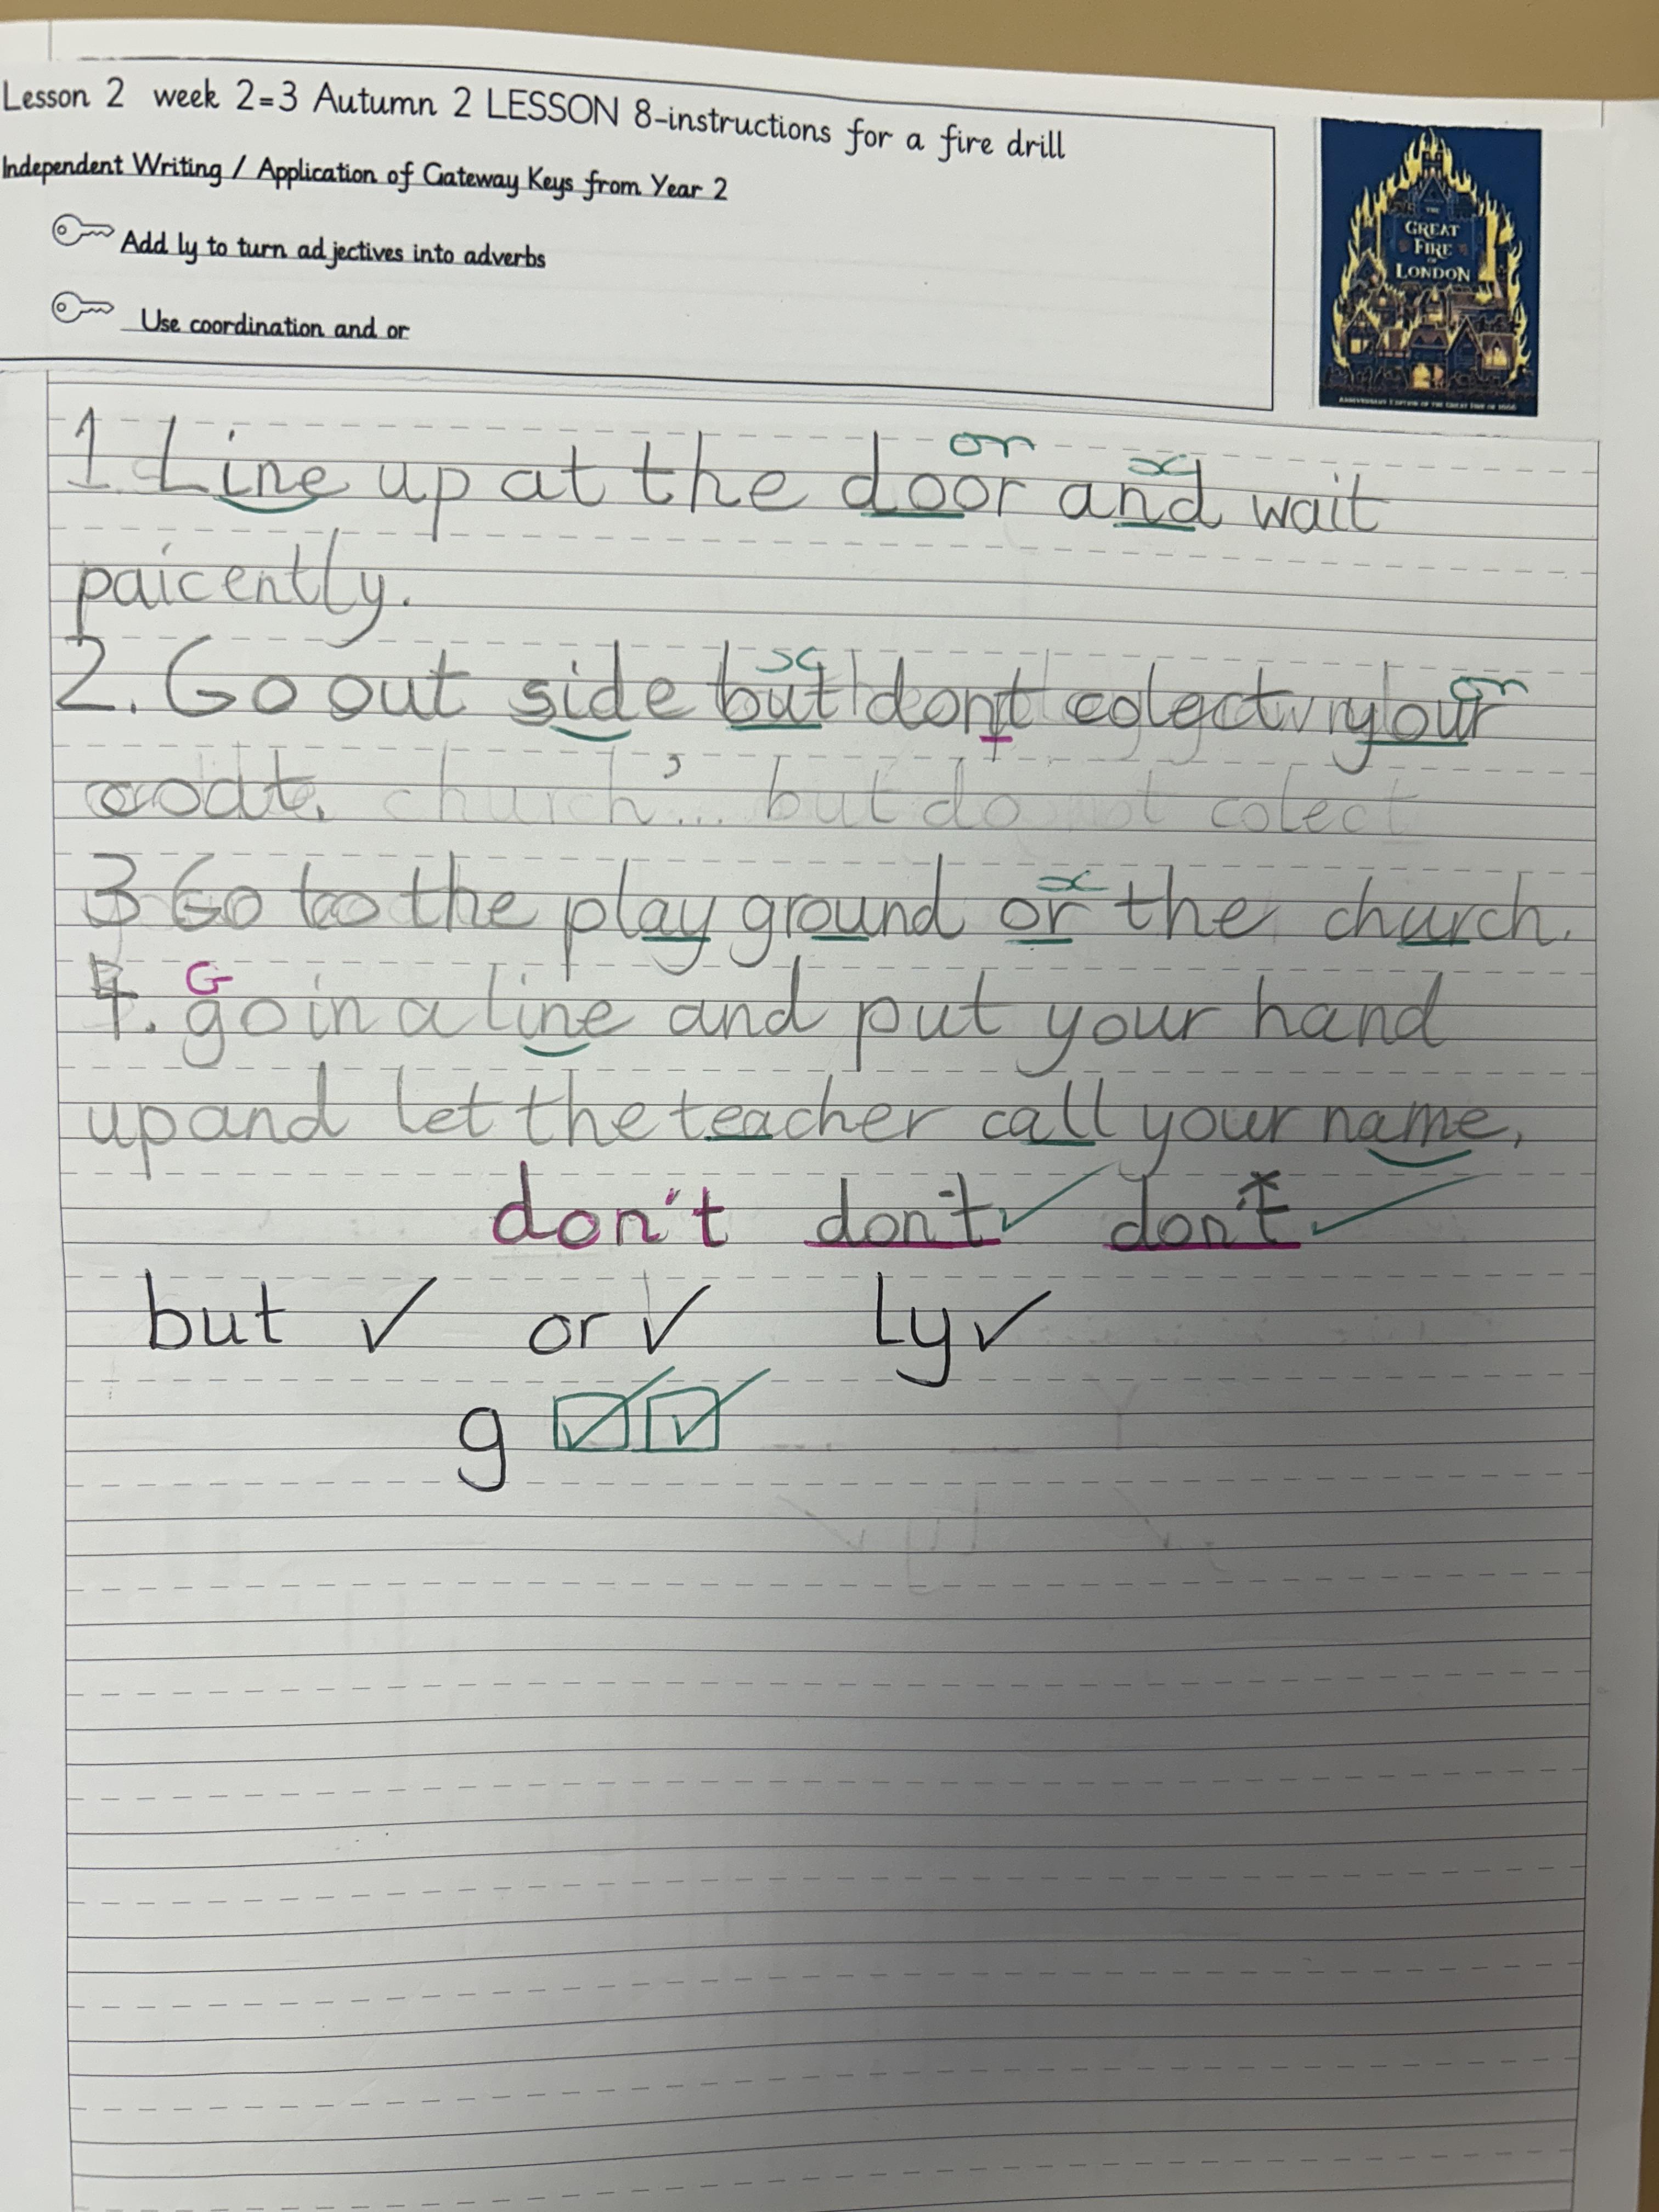 Lesson 2 week 2=3 Autumn 2 LESSON 8-instructions for a fire drill
Independent Writing / Application of Gateway Keys from Year 2
Add ly to turn adjectives into adverbs
Use coordination and or
THE
GREAT
FIRE
OF
LONDON
or
1 Line up at the door and wait
paicently.
2. Go out side but dont colect your
church ... but do not colect
3 Go to the play ground or the church.
G
4. go in a line and put your hand
up and let the teacher call your name.
don't don't ✓ don't ✓
but ✓ or ✓ ly ✓
g ☑ ☑